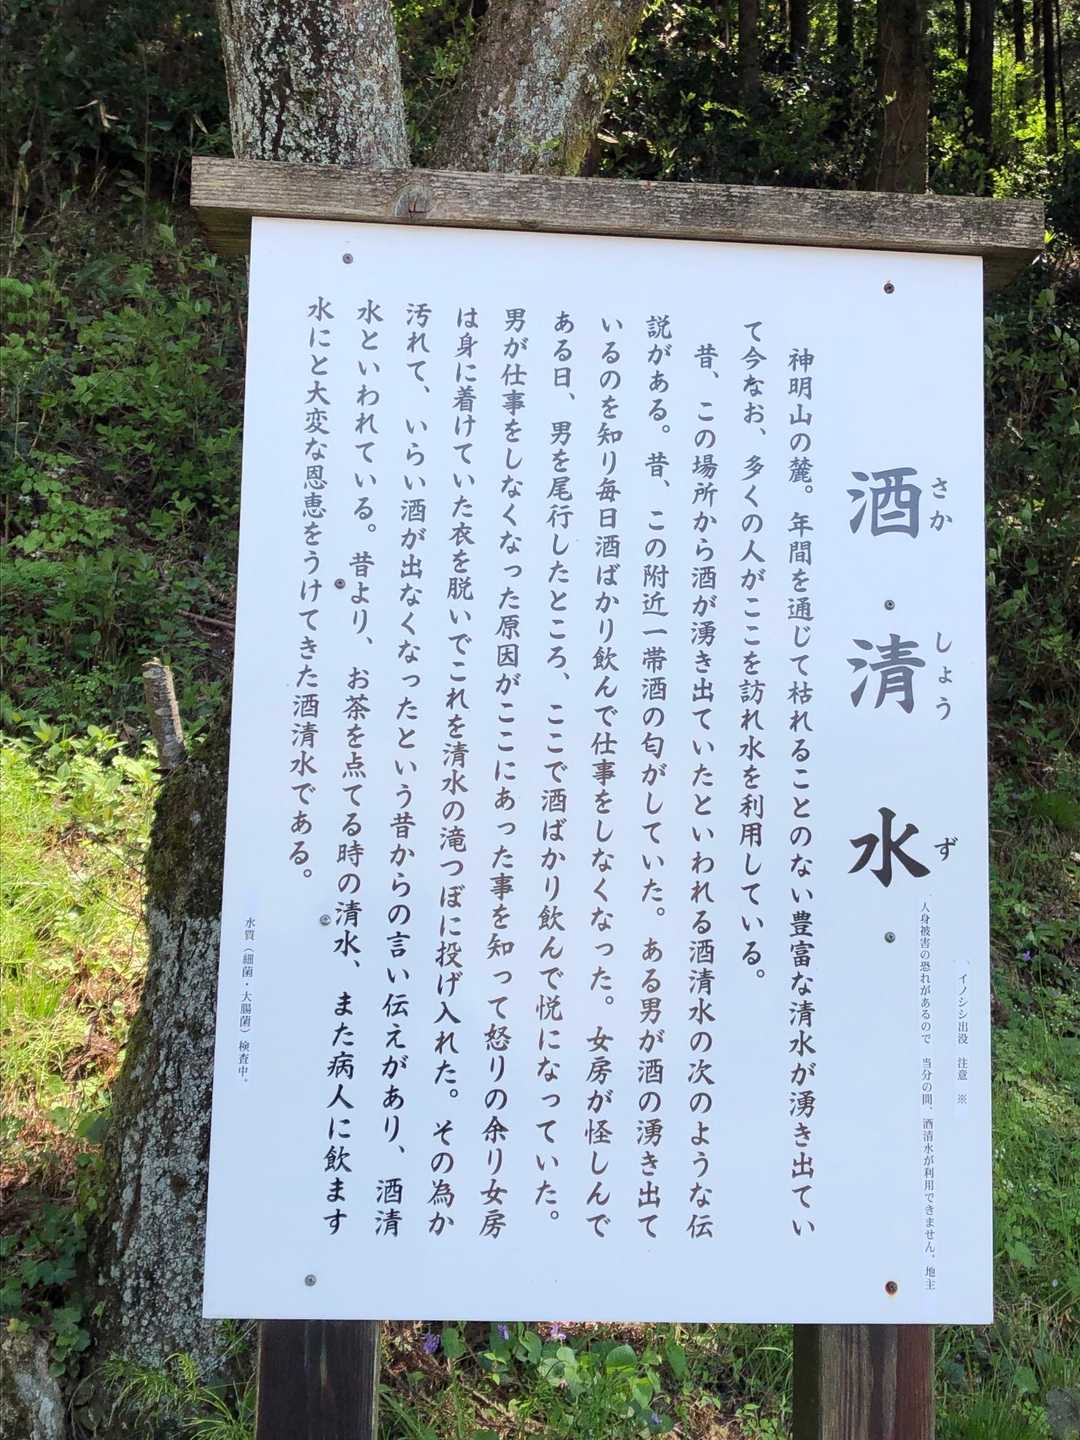 、イノシシ出没　注意　※
人身被害の恐れがあるので　当分の間、酒清水が利用できません。地主
酒清水
さかしょうず
神明山の麓。年間を通じて枯れることのない豊富な清水が湧き出てい
て今なお、多くの人がここを訪れ水を利用している。
昔、この場所から酒が湧き出ていたといわれる酒清水の次のような伝
説がある。昔、この附近一帯酒の匂がしていた。ある男が酒の湧き出て
いるのを知り毎日酒ばかり飲んで仕事をしなくなった。女房が怪しんで
ある日、男を尾行したところ、ここで酒ばかり飲んで悦になっていた。
男が仕事をしなくなった原因がここにあった事を知って怒りの余り女房
は身に着けていた衣を脱いでこれを清水の滝つぼに投げ入れた。その為か
汚れて、いらい酒が出なくなったという昔からの言い伝えがあり、酒清
水といわれている。昔より、お茶を点てる時の清水、また病人に飲ます
水にと大変な恩恵をうけてきた酒清水である。
水質（細菌・大腸菌）検査中。